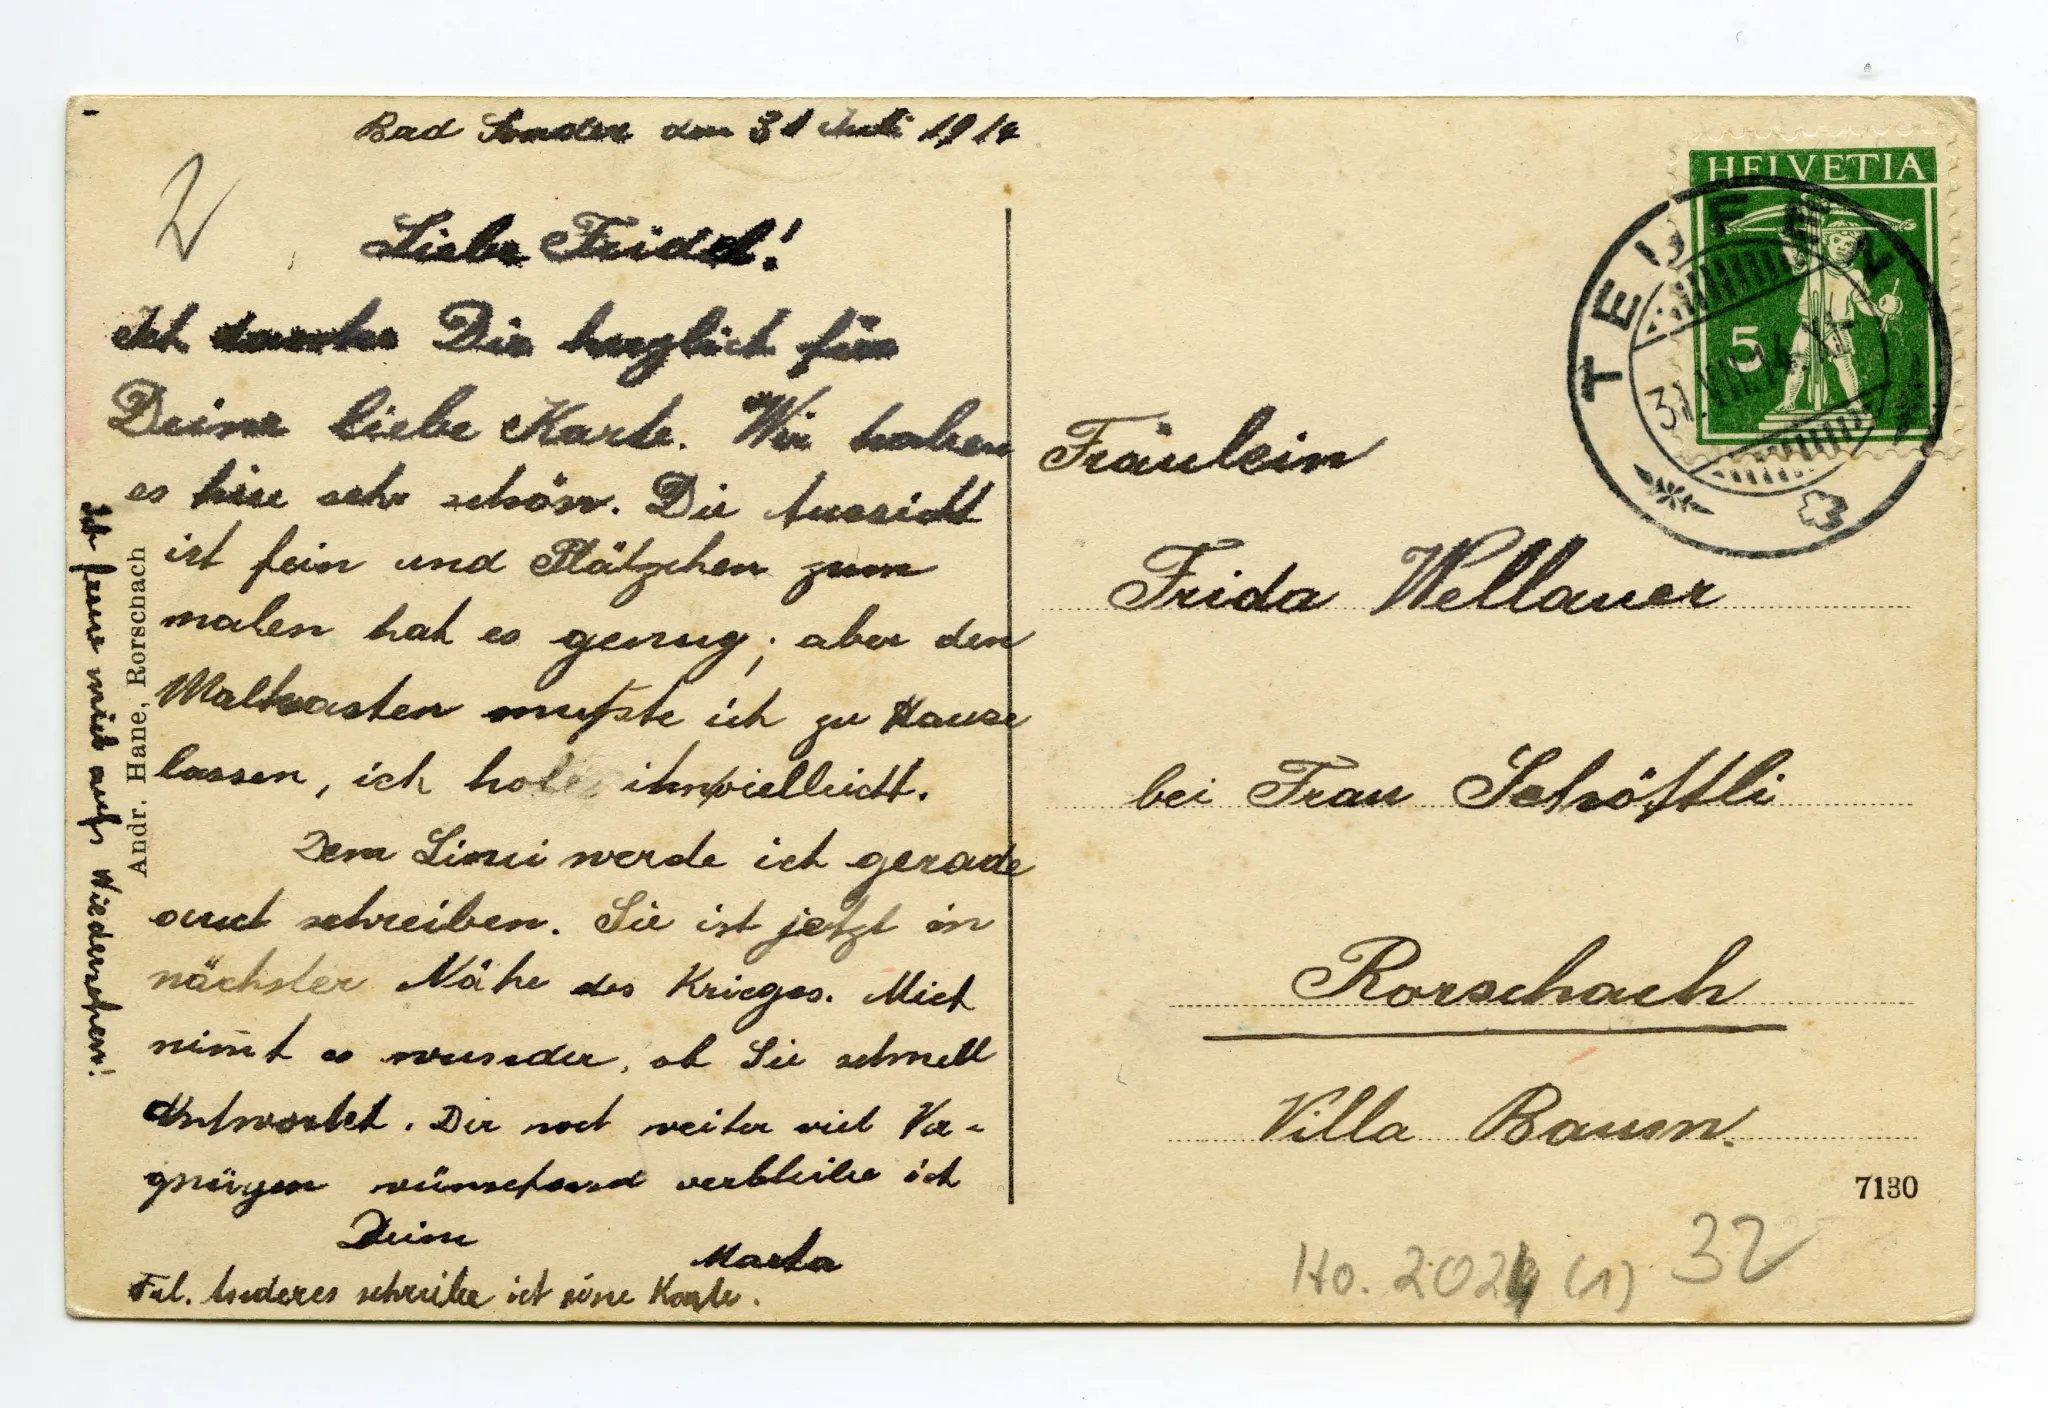 Bad Sonder den 31 Juli 1914
Liebe Frida!
Ich danke Dir herzlich für
Deine liebe Karte. Wir haben
es hier sehr schön. Die Aussicht
ist fein und Plätzchen zum
malen hat es genug; aber den
Malkasten mußte ich zu Hause
lassen, ich hole ihn vielleicht.
Dem Linui werde ich gerade
auch schreiben. Sie ist jetzt in
nächster Nähe des Krieges. Mich
nimmt es wunder, ob Sie schnell
Antwortet. Dir noch weiter viel Ver-
gnügen wünschend verbleibe ich
Deine
Marta
Frl. Anderes schreibe ich eine Karte.
Ich freue mich aufs Wiedersehen!
Andr. Hane, Rorschach
2
HELVETIA
5
TEUFEN
31.VII.14.
Fräulein
Frida Wellauer
bei Frau Schöftli
Rorschach
Villa Baum.
7130
Ho. 2024 (1) 32